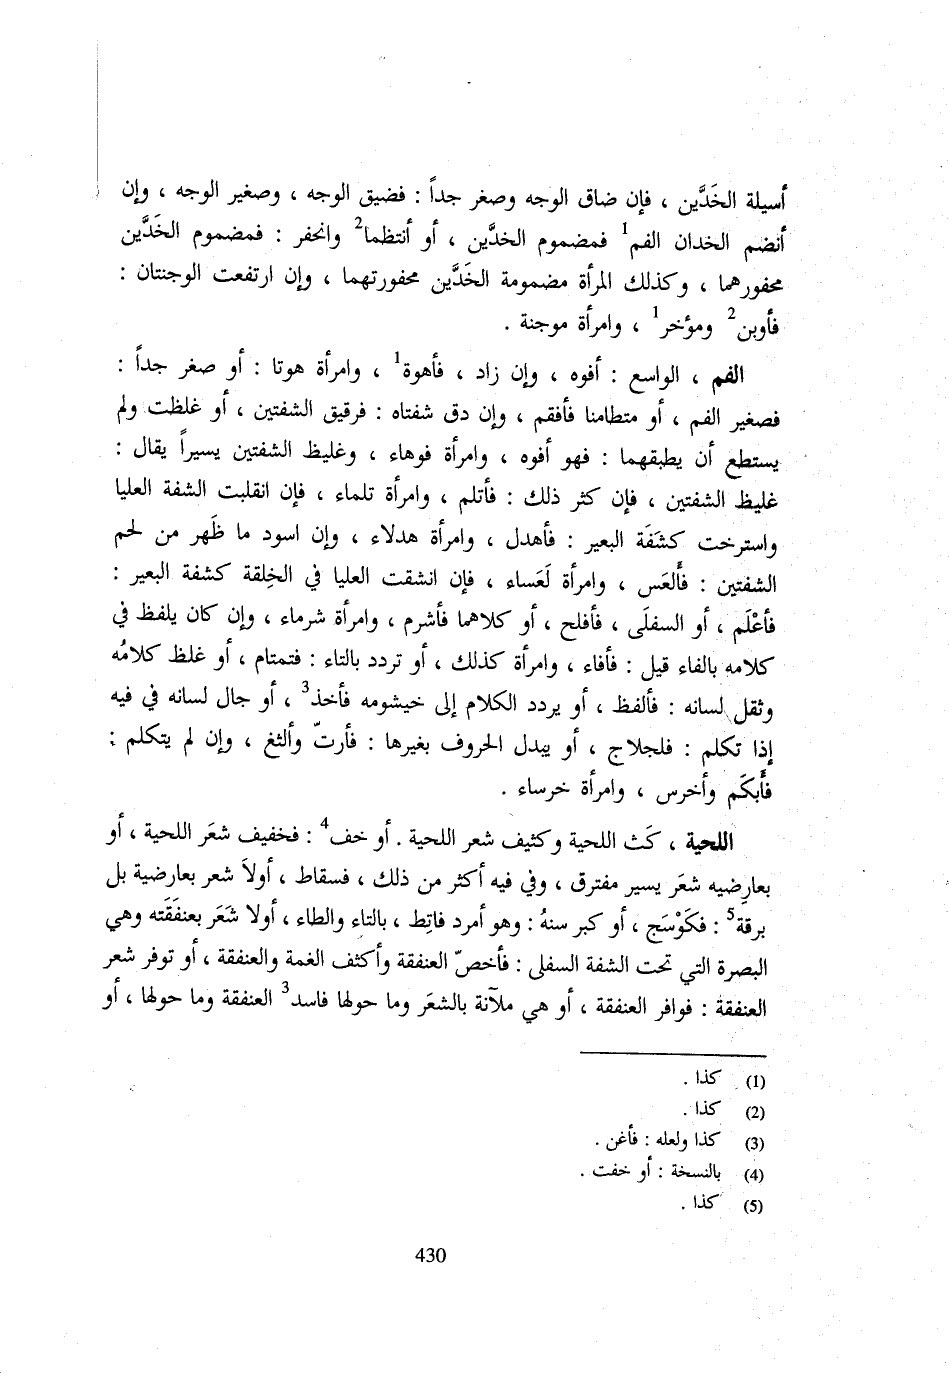 أسيلة الخَدَّين ، فإن ضاق الوجه وصغر جداً : فضيق الوجه ، وصغير الوجه ، وإن
أنضم الخدان الفم1 فمضموم الخدَّين ، أو أنتظما2 وانحفر : فمضموم الخَدَّين
محفورهما ، وكذلك المرأة مضمومة الخَدَّين محفورتهما ، وإن ارتفعت الوجنتان :
فأوبن2 ومؤخر1 ، وامرأة موجنة .
الفم ، الواسع : أفوه ، وإن زاد ، فأهوة1 ، وامرأة هوتا : أو صغر جداً :
فصغير الفم ، أو متطامنا فأفقم ، وإن دق شفتاه : فرقيق الشفتين ، أو غلظت ولم
يستطع أن يطبقهما : فهو أفوه ، وامرأة فوهاء ، وغليظ الشفتين يسيراً يقال :
غليظ الشفتين ، فإن كثر ذلك : فأتلم ، وامرأة تلماء ، فإن انقلبت الشفة العليا
واسترخت كشَفَة البعير : فأهدل ، وامرأة هدلاء ، وإن اسود ما ظَهر من لحم
الشفتين : فألعَس ، وامرأة لَعَساء ، فإن انشقت العليا في الخِلقة كشفة البعير :
فأعْلَم ، أو السفلَى ، فأفلح ، أو كلاهما فأشرم ، وامرأة شرماء ، وإن كان يلفظ في
كلامه بالفاء قيل : فأفاء ، وامرأة كذلك ، أو تردد بالتاء : فتمتام ، أو غلظ كلامُه
وثقل لسانه : فألفظ ، أو يردد الكلام إلى خيشومه فأخذ3 ، أو جال لسانه في فيه
إذا تكلم : فلجلاج ، أو يبدل الحروف بغيرها : فأرتّ وألثغ ، وإن لم يتكلم :
فأبكَم وأخرس ، وامرأة خرساء .
اللحية ، كَث اللحية وكثيف شعر اللحية . أو خف4 : فخفيف شعَر اللحية ، أو
بعارضيه شعَر يسير مفترق ، وفي فيه أكثر من ذلك ، فسقاط ، أولاَ شعر بعارضية بل
برقة5 : فكَوْسَج ، أو كبر سنهُ : وهو أمرد فاتِط ، بالتاء والطاء ، أولا شَعَر بعنفَقَته وهي
البصرة التي تحت الشفة السفلى : فأخصّ العنفقة وأكثف الغمة والعنفقة ، أو توفر شعر
العنفقة : فوافر العنفقة ، أو هي ملآنة بالشعَر وما حولها فاسد3 العنفقة وما حولها ، أو
(1) كذا .
(2) كذا .
(3) كذا ولعله : فأغن .
(4) بالنسخة : أو خفت .
(5) كذا .
430